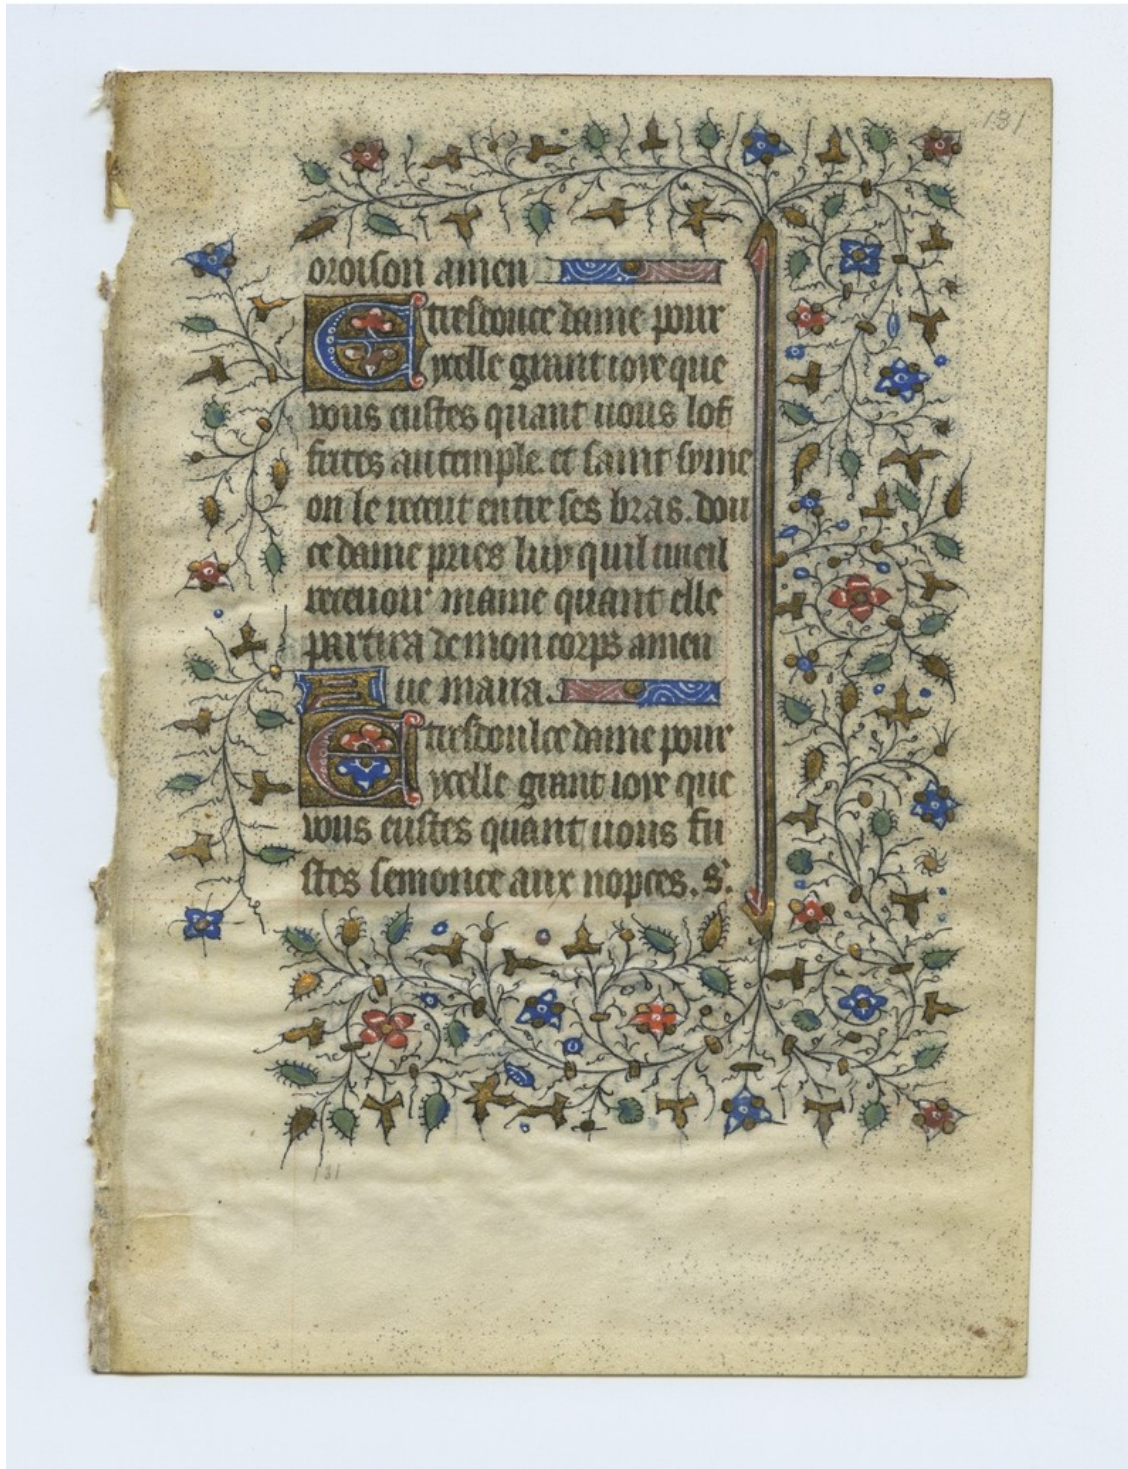 131
oroison amen
E tresdouce dame pour
ycelle grant ioye que
vous eustes quant uous lof
frites au temple. et saint syme
on le receut entre ses bras. dou
ce dame pries luy quil ueil
receuoir mame quant elle
partira de mon corps amen
Aue maria.
E tresdoulce dame pour
ycelle grant ioye que
vous eustes quant uous fu
stes semonce aux nopces. S.
131